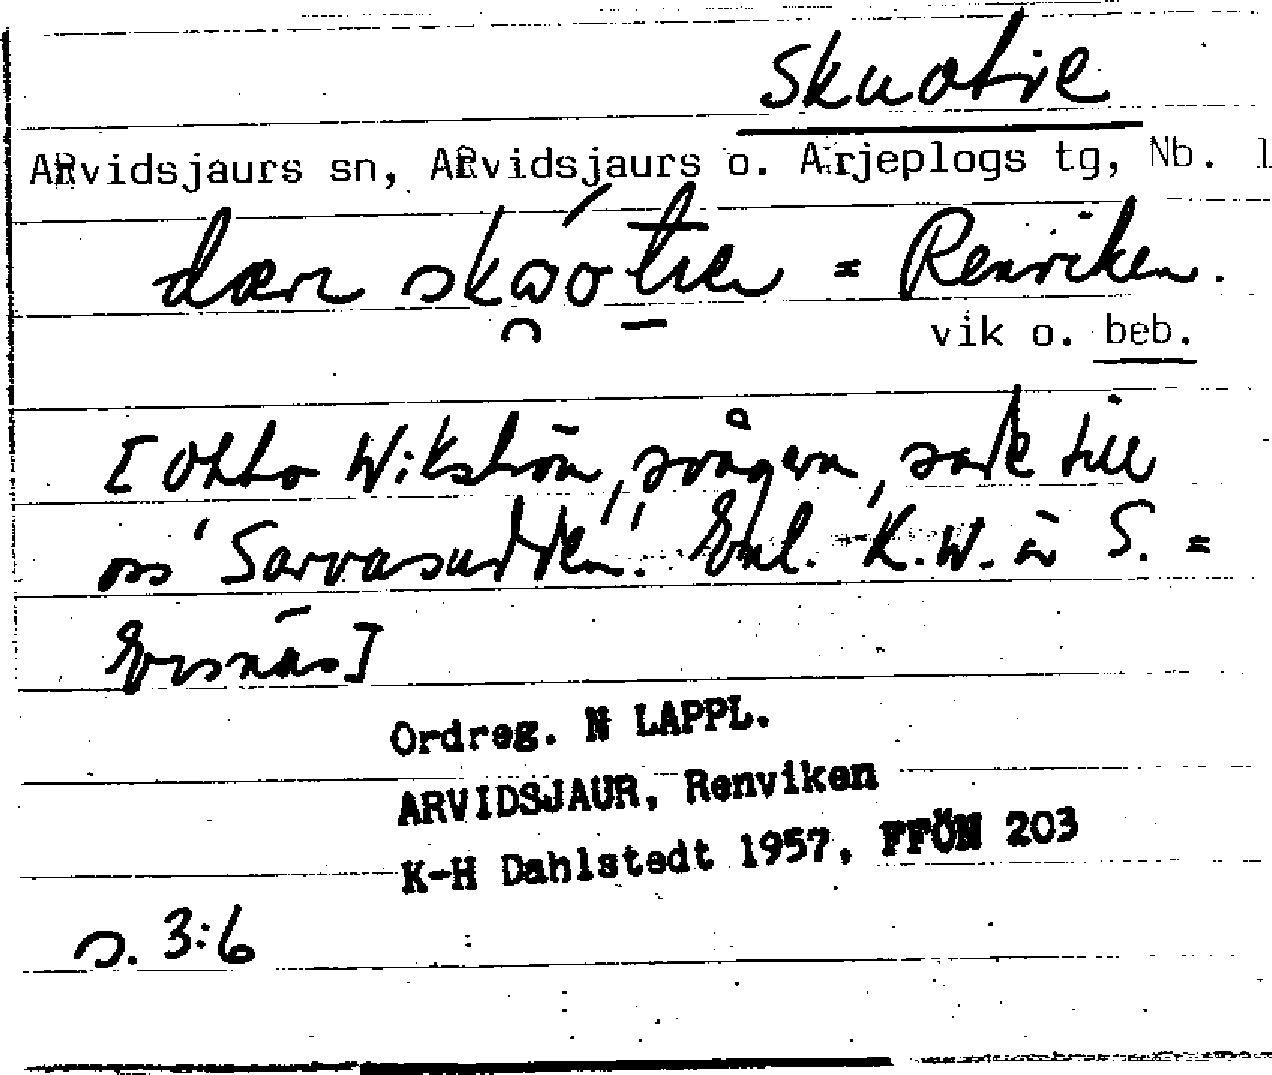 Skuotie
ARvidsjaurs sn, ARvidsjaurs o. Arjeplogs tg, Nb. l
= Renviken.
vik o. beb.
[Otto Wikström, svågern, sade till
oss 'Sarvasudden'. Enl. K.W. är S. =
Evisnäs]
Ordreg. N LAPPL.
ARVIDSJAUR, Renviken
K-H Dahlstedt 1957, FFÖN 203
s. 3:6